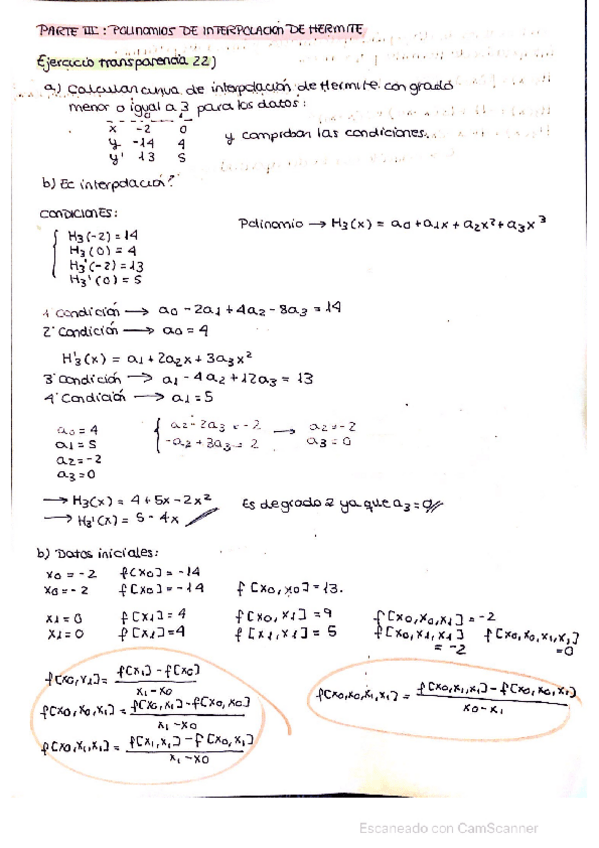 PARTE III: POLINOMIOS DE INTERPOLACIÓN DE HERMITE
Ejercicio transparencia 22)
a) Calcular curva de interpolación de Hermite con grado
menor o igual a 3 para los datos:
x -2 0
y -14 4
y' 13 5
y comprobar las condiciones.
b) Ec interpolación?
CONDICIONES:
Polinomio → H3(x) = a0 + a1x + a2x² + a3x³
H3(-2) = 14
H3(0) = 4
H3'(-2) = 13
H3'(0) = 5
1 Condición → a0 - 2a1 + 4a2 - 8a3 = 14
2ª Condición → a0 = 4
H'3(x) = a1 + 2a2x + 3a3x²
3ª Condición → a1 - 4a2 + 12a3 = 13
4ª Condición → a1 = 5
a0 = 4
a1 = 5
a2 = -2
a3 = 0
a2 - 2a3 = -2 → a2 = -2
-a2 + 3a3 = 2 a3 = 0
→ H3(x) = 4 + 5x - 2x² Es de grado 2 ya que a3 = 0//
→ H3'(x) = 5 - 4x
b) Datos iniciales:
x0 = -2 f[x0] = -14
x0 = -2 f[x0] = -14 f[x0, x0] = 13.
x1 = 0 f[x1] = 4 f[x0, x1] = 9 f[x0, x0, x1] = -2
x1 = 0 f[x1] = 4 f[x1, x1] = 5 f[x0, x1, x1] = -2 f[x0, x0, x1, x1] = 0
f[x0, x1] = f[x1] - f[x0] / x1 - x0
f[x0, x0, x1] = f[x0, x1] - f[x0, x0] / x1 - x0
f[x0, x1, x1] = f[x1, x1] - f[x0, x1] / x1 - x0
f[x0, x0, x1, x1] = f[x0, x1, x1] - f[x0, x0, x1] / x0 - x1
Escaneado con CamScanner